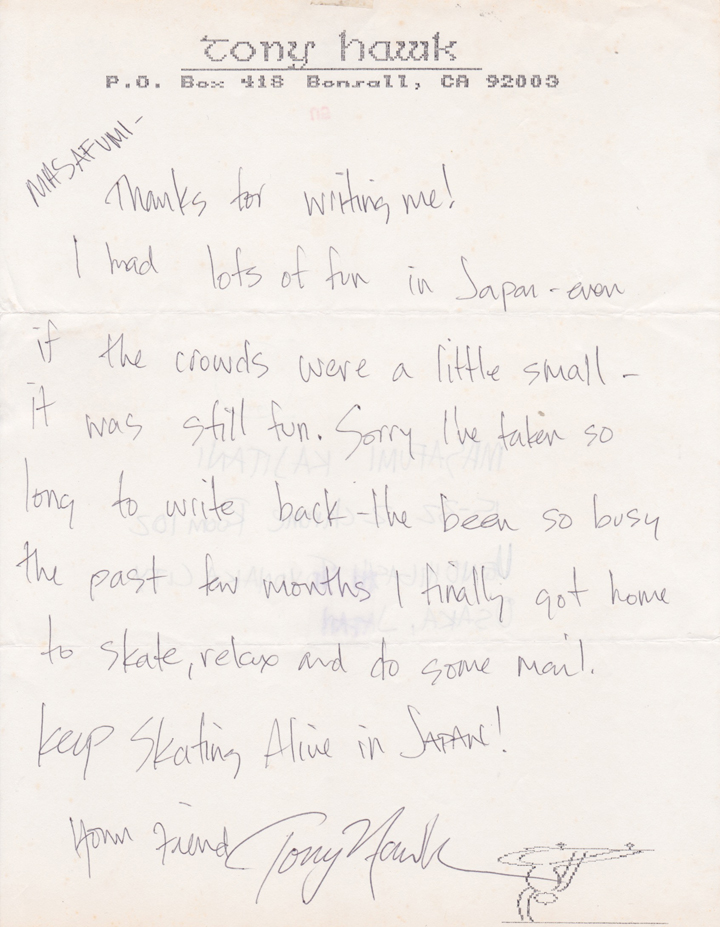 tony hawk
P.O. Box 418 Bonsall, CA 92003
MASAFUMI-
Thanks for writing me!
I had lots of fun in Japan - even
if the crowds were a little small -
it was still fun. Sorry I've taken so
long to write back - I've been so busy
the past few months I finally got home
to skate, relax and do some mail.
Keep Skating Alive in JAPAN!
Your Friend
Tony Hawk